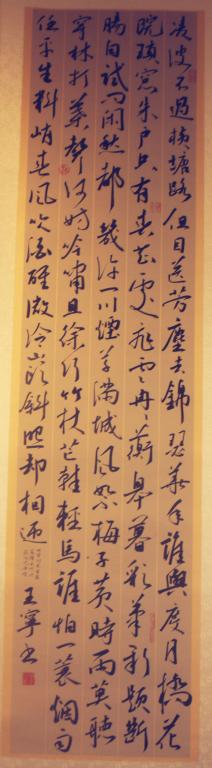 凌波不過横塘路但目送芳塵去錦瑟華年誰與度月橋花
院瑣窗朱户只有春知處飛雲冉冉蘅皋暮彩筆新題斷
腸句試問閑愁都幾許一川煙草滿城風絮梅子黄時雨莫聽
穿林打葉聲何妨吟嘯且徐行竹杖芒鞋輕馬誰怕一蓑烟雨
任平生料峭春風吹酒醒微冷山頭斜照却相迎
王寧書